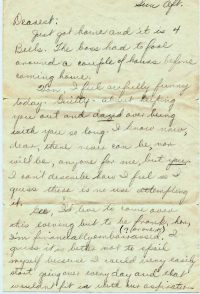 Sun Aft.
Dearest:
Just got home and it is 4
Bells. The boss had to fool
around a couple of hours before
coming home.
Hon, I feel awfully funny
today. Guilty - about keeping
you out and over being
with you so long. I know now,
dear, there never can be, nor
will be, anyone for me, but you.
I can't describe how I feel so I
guess there is no use attempting
it.
Gee, I'd love to come over
this evening but to be frank, hon,
I'm financially embarrassed, I
guess it is better not to spoil
myself because I could very easily
start going over every day and that
wouldn't fit in with our